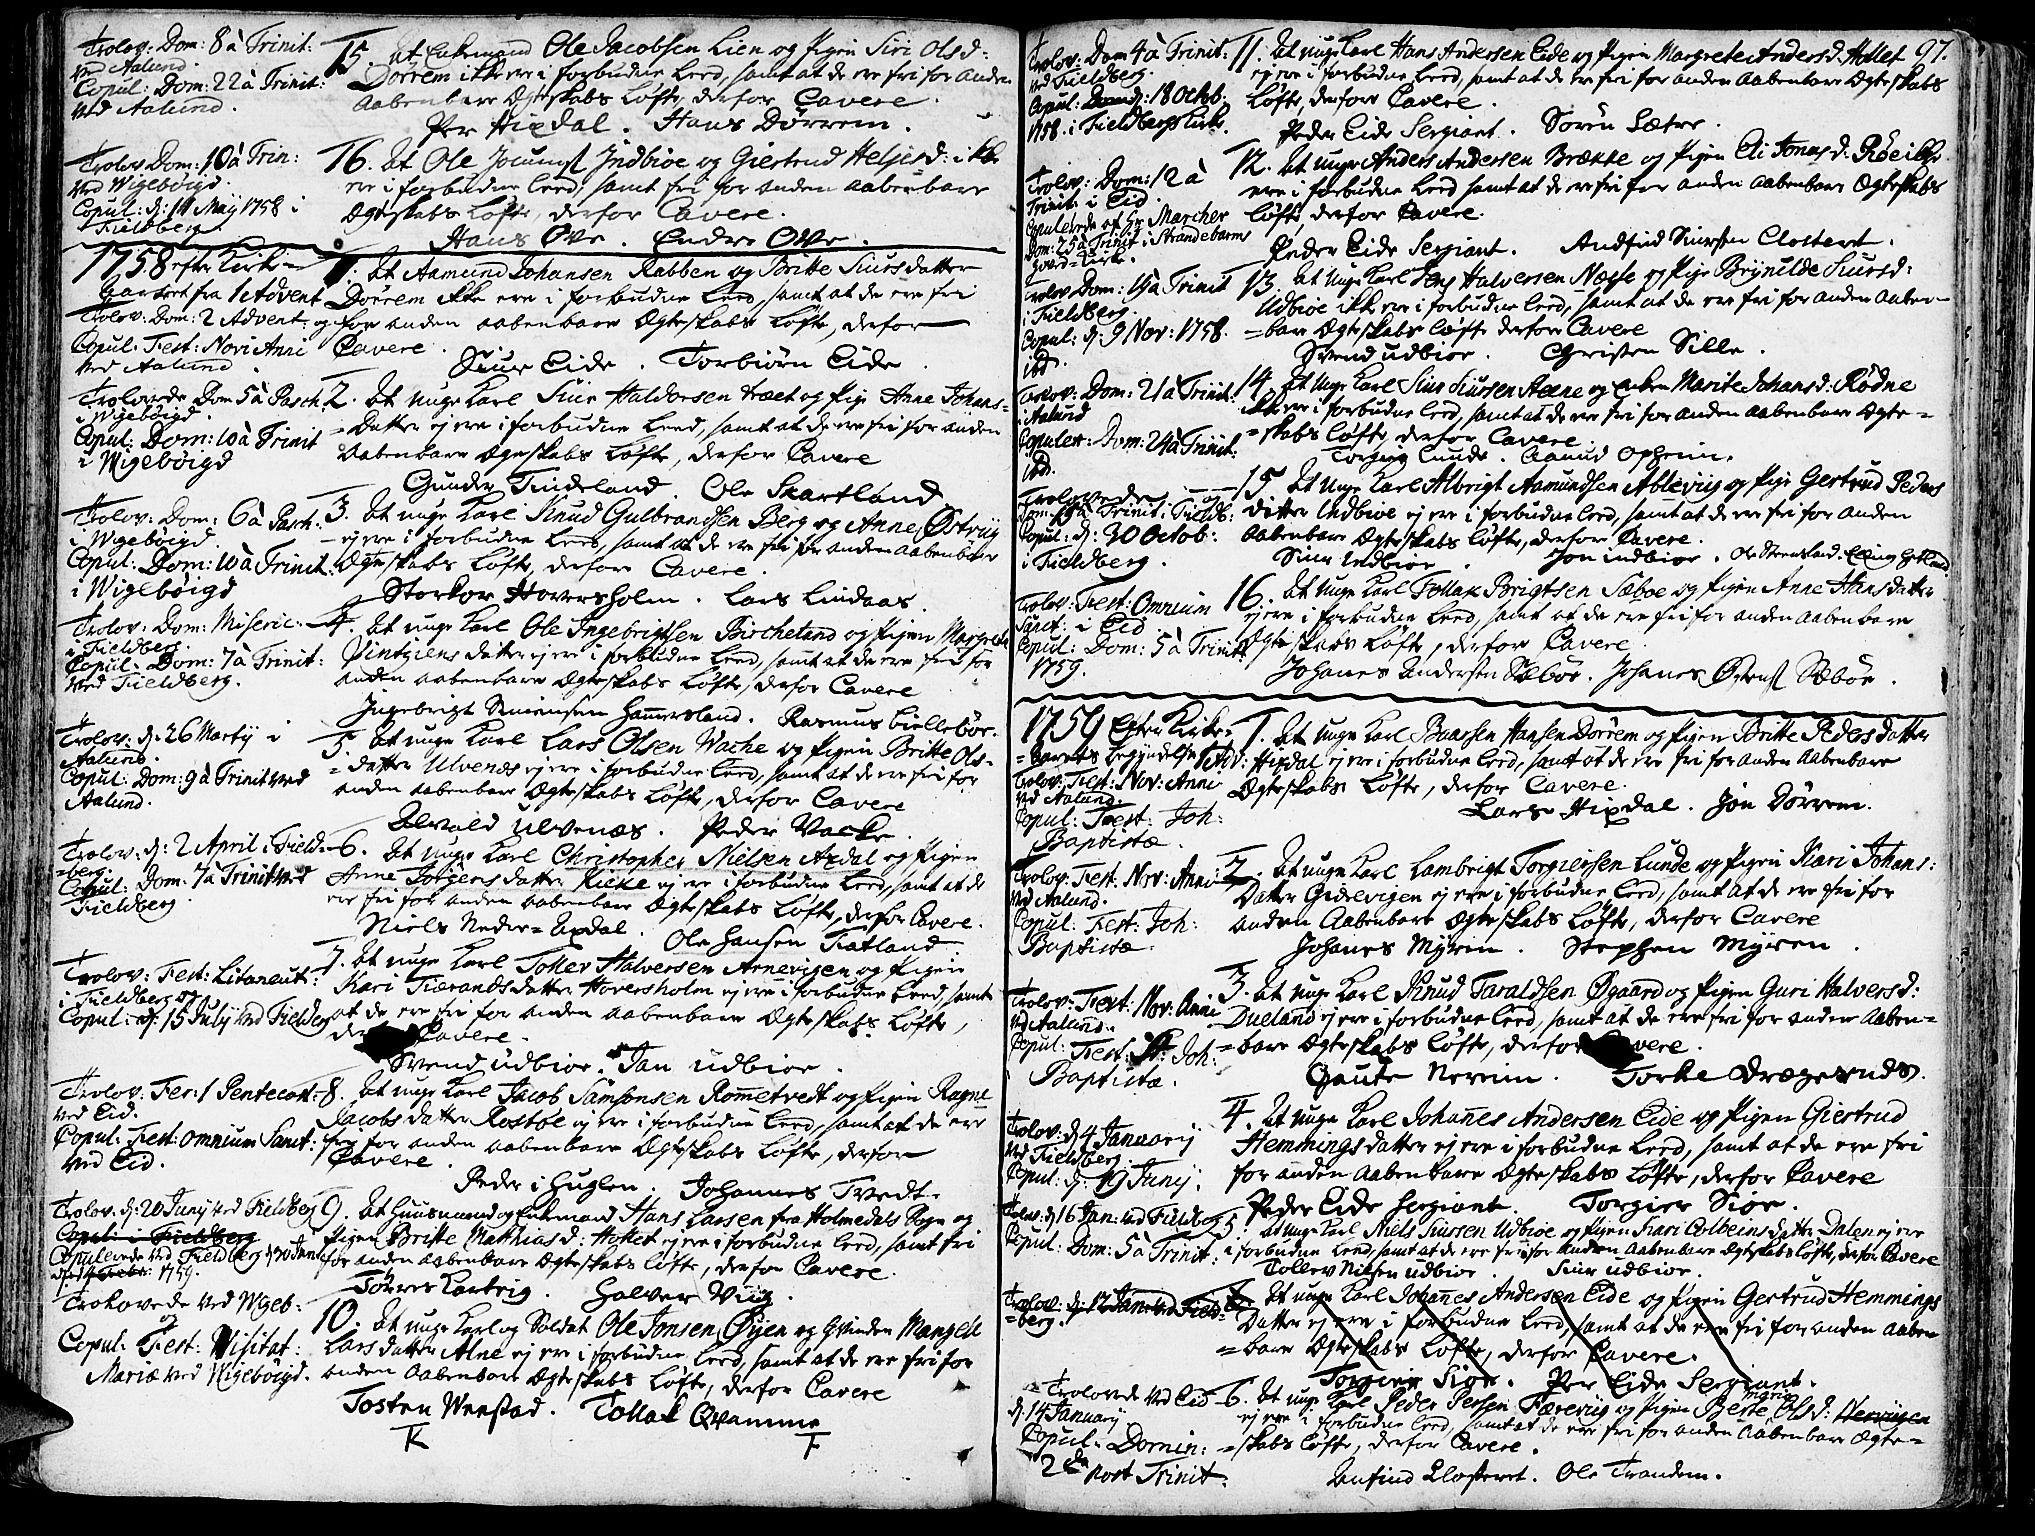 Trolov: Dom: 8 à Trinit:
ved Aalund.
Copul: Dom: 22 à Trinit:
ved Aalund.
15. At Enkemand Ole Jacobsen Lien og Pigen Siri Olsd:
Dørrem ikke ere i forbudne Leed, samt at de ere fri for anden
aabenbare Ægteskabs Løfte, derfor Cavere.
Per Hixdal. Hans Dørrem.
Trolov: Dom: 10 à Trin:
ved Wigebøigd.
Copul: d: 11 Maij 1758 i
Fieldberg.
16. At Ole Indbioe og Giertrud Heljesd:
ere i forbudne Leed, samt fri for anden aabenbare
Ægteskabs Løfte, derfor Cavere.
Hans Ove. Endre Ove.
1758 efter Kirke-
Aaret fra 1 Advent
Trolov: Dom: 2 Advent: og
Copul: Fest: Novi Anni
ved Aalund.
1. At Aamund Johansen Rabben og Britte Siursdatter
Dørrem ikke ere i forbudne Leed, samt at de ere fri
for anden aabenbare Ægteskabs Løfte, derfor
Cavere.
Siur Eide. Torbiørn Eide.
Trolovede Dom 5 à Pasch:
i Wigebøigd
Copul: Dom: 10 à Trinit
i Wigebøigd
2. At unge Karl Siur Haldorsen træet og Pige Anne Johans=
=Datter ej ere i forbudne Leed, samt at de ere fri for anden
aabenbare Ægteskabs Løfte, derfor Cavere
Gunder Tindeland. Ole Skartland
Trolov: Dom: 6 à Pasch:
i Wigebøigd.
Copul: Dom: 10 à Trinit:
i Wigebøigd
3. At unge Karl Knud Gulbrandsen Berg og Anne Østrüy
ej ere i forbudne Leed, samt at de ere fri for anden aabenbare
Ægteskabs Løfte, derfor Cavere.
Storkor Hoversholm. Lars Lindaas.
Trolov: Dom: Miseric:
i Fieldberg.
Copul: Dom: 7 à Trinit:
ved Fieldberg.
4. At unge Karl Ole Ingebrigtsen Bircheland og Pigen Margrete
Vintziensdatter ej ere i forbudne Leed, samt at de ere fri for
anden aabenbare Ægteskabs Løfte, derfor Cavere
Ingebrigt Hammersland. Rasmus Biellebør.
Trolov: d: 26 Martij i
Aalund.
Copul: Dom: 9 à Trinit ved
Aalund.
5. At unge Karl Lars Olsen Wache og Pigen Britte Ols=
=datter Ulvenes ej ere i forbudne Leed, samt at de ere fri for
anden aabenbare Ægteskabs Løfte, derfor Cavere
Ulvenæs. Peder Vacke.
Trolov: d: 2 April i Field-
=berg.
Copul: Dom: 7 à Trinit ved
Fieldberg
6. At unge Karl Christopher Nielsen Axdal og Pigen
Anne Jørgensdatter Kieke ej ere i forbudne Leed, samt at de
ere fri for anden aabenbare Ægteskabs Løfte, derfor Cavere.
Niels Nedre=Axdal. Ole Hansen Tiatland.
Trolov: Fest: Litaneut:
i Fieldberg og
Copul: d: 15 July ved Fieldberg
7. At unge Karl Tollev Halversen Arnevigen og Pigen
Kari Tierandsdatter Hoversholm ej ere i forbudne Leed, samt
at de ere fri for anden aabenbare Ægteskabs Løfte,
Cavere.
Svend Udbioe. Jan Udbioe.
Trolov: Fer: 1 Pentecost:
ved Eid.
Copul: Fest: Omnium Sanct:
ved Eid.
8. At unge Karl Jacob Samsonsen Rometvedt og Pigen Ragne
Jacobsdatter Rostøe ej ere i forbudne Leed, samt at de ere
fri for anden aabenbare Ægteskabs Løfte, derfor
Cavere.
Peder i Huglen. Johannes Tvedt.
Trolov: d: 20 Junij ved Fieldberg
Copul: i Fieldberg
Copulerede ved Fieldberg d: 30 Janu:
1759.
9. At Huusmand og Enkemand Hans Larsen fra Holmedals Sogn og
Pigen Britte Mathiasd: Hollet ej ere i forbudne Leed, samt fri
for anden aabenbare Ægteskabs Løfte, derfor Cavere.
Tørres Halver Viig.
Trolovede ved Wigeb:
og
Copul: Fest: Visitat:
Mariæ ved Wigebøigd.
10. At unge Karl og Soldat Ole Jonsen Øyen og Qvinden Mangele
Larsdatter Alne ej ere i forbudne Leed, samt at de ere fri for
anden aabenbare Ægteskabs Løfte, derfor Cavere
Tosten Weestad. Tollak Qvamme
97.
Trolov: Dom 4 à Trinit:
ved Fieldberg.
Copul: d: 18 Octob:
1758. i Fieldbergs Kirke.
11. At unge Karl Hans Andersen Eide og Pigen Margrete Andersd: Hollet
ej ere i forbudne Leed, samt at de ere fri for anden aabenbare Ægteskabs
Løfte, derfor Cavere.
Peder Eide Sergiant. Søren Sætre.
Trolov: Dom: 12 à
Trinit: i Eid.
Copulerede af Hr Marcher
Dom: 25 à Trinit i Strandebarms
Hoved=Kirke.
12. At unge Anders Andersen Brække og Pigen Eli Jonasd: Røe
ere i forbudne Leed samt at de ere fri for anden aabenbare Ægteskabs
Løfte derfor Cavere.
Peder Eide Sergiant. Andfind Siursen Closteret.
Trolov: Dom: 19 à Trinit
i Fieldberg.
Copul: d: 9 Nov: 1758.
ibd.
13. At unge Karl Jens Halversen Næsse og Pige Brynilde Siursd:
Udbioe ikke ere i forbudne Leed, samt at de ere fri for anden aaben-
=bare Ægteskabs Løfte derfor Cavere
Svend Udbioe. Christen Sille.
Trolov: Dom: 21 à Trinit:
i Aalund
Copuler: Dom: 24 à Trinit:
ibd.
14. At unge Karl Siur Siursen Axene og Enken Marite Johansd: Rødne
ikke ere i forbudne Leed, samt at de ere fri for anden aabenbare Ægte=
=skabs Løfte, derfor Cavere.
Torgier Lunde. Aamund Opheim.
Trolovede
Dom: 19 à Trinit: i Fieldb:
Copul: d: 30 Octob:
i Fieldberg.
15. At unge Karl Albrigt Aamundsen Ablevig og Pige Gertrud Peders
datter Indbioe ej ere i forbudne Leed, samt at de ere fri for anden
aabenbare Ægteskabs Løfte, derfor Cavere.
Siur Indbioe. Jon Indbioe.
Trolov: Fest: Omnium
Sanct. i Eid
Copul: Dom: 5 à Trinit
1759.
16. At unge Karl Tollak Brigtsen Sæbøe og Pigen Anne Hansdatter
ej ere i forbudne Leed, samt at de ere fri for anden aabenbare
Ægteskabs Løfte, derfor Cavere
Johanes Andersen Sæbøe. Johanes Østens: Sæbøe.
1759 Efter Kirke=
=Aarets begyndelse 1 Adv:
Trolov: Fest: Nov: Anni
ved Aalund.
Copul: Fest: Joh:
Baptistæ.
1. At unge Karl Baarsen Hansen Dørrem og Pigen Britte Pedersdatter
Hixdal ej ere i forbudne Leed, samt at de ere fri for anden aabenbare
Ægteskabs Løfte, derfor Cavere.
Lars Hixdal. Jon Dørrem.
Trolov: Fest: Nov: Anni
ved Aalund.
Copul: Fest: Joh:
Baptistæ.
2. At unge Karl Lambrigt Torgiersen Lunde og Pigen Kari Johans:
Datter Giærevigen ej ere i forbudne Leed, samt at de ere fri for
anden Aabenbare Ægteskabs Løfte, derfor Cavere
Johanes Myren. Stephen Myren.
Trolov: Fest: Nov: Anni
ved Aalund.
Copul: Fest: St: Joh:
Baptistæ.
3. At unge Karl Knud Taraldsen Øgaard og Pigen Guri Halversd:
Dueland ej ere i forbudne Leed, samt at de ere fri for anden Aaben=
=bare Ægteskabs Løfte, derfor Cavere.
Gaute Nerrim. Torke Drægesnds.
Trolov: d: 4 Januarij
ved Fieldberg.
Copul: d: 19 Junij.
4. At unge Karl Johanes Andersen Eide og Pigen Giertrud
Hemmingsdatter ej ere i forbudne Leed, samt at de ere fri
for anden Aabenbare Ægteskabs Løfte, derfor Cavere
Peder Eide Sergiante. Torgier Siøe.
Trolov: d: 16 Jan: ved Fieldberg
Copul: Dom: 5 à Trinit:
5. At unge Karl Niels Siursen Udbioe og Pigen Kari Colbeinsdatter Dalen ej ere
i forbudne Leed, samt at de ere fri for anden aabenbare Ægteskabs Løfte, derfor Cavere
Tollev Nilsen Udbioe. Siur Udbioe.
Trolov: d: 12 Jan: ved Field=
=berg.
At unge Karl Johanes Andersen Eide og Pigen Gertrud Hemmings
Datter ej ere i forbudne Leed, samt at de ere fri for anden Aaben
=bare Ægteskabs Løfte, derfor Cavere.
Torgier Siøe. Per Eide Sergiant.
Trolovede ved Eid
d: 14 January
Copul: Domin:
2da post Trinit.
6. At unge Karl Peder Persen Færevig og Pigen Berte Maria Olsd:
ej ere i forbudne Leed, samt at de ere fri for anden Aabenbare Ægte=
=skabs Løfte, derfor Cavere.
Anfind Closteret. Ole Trandem.